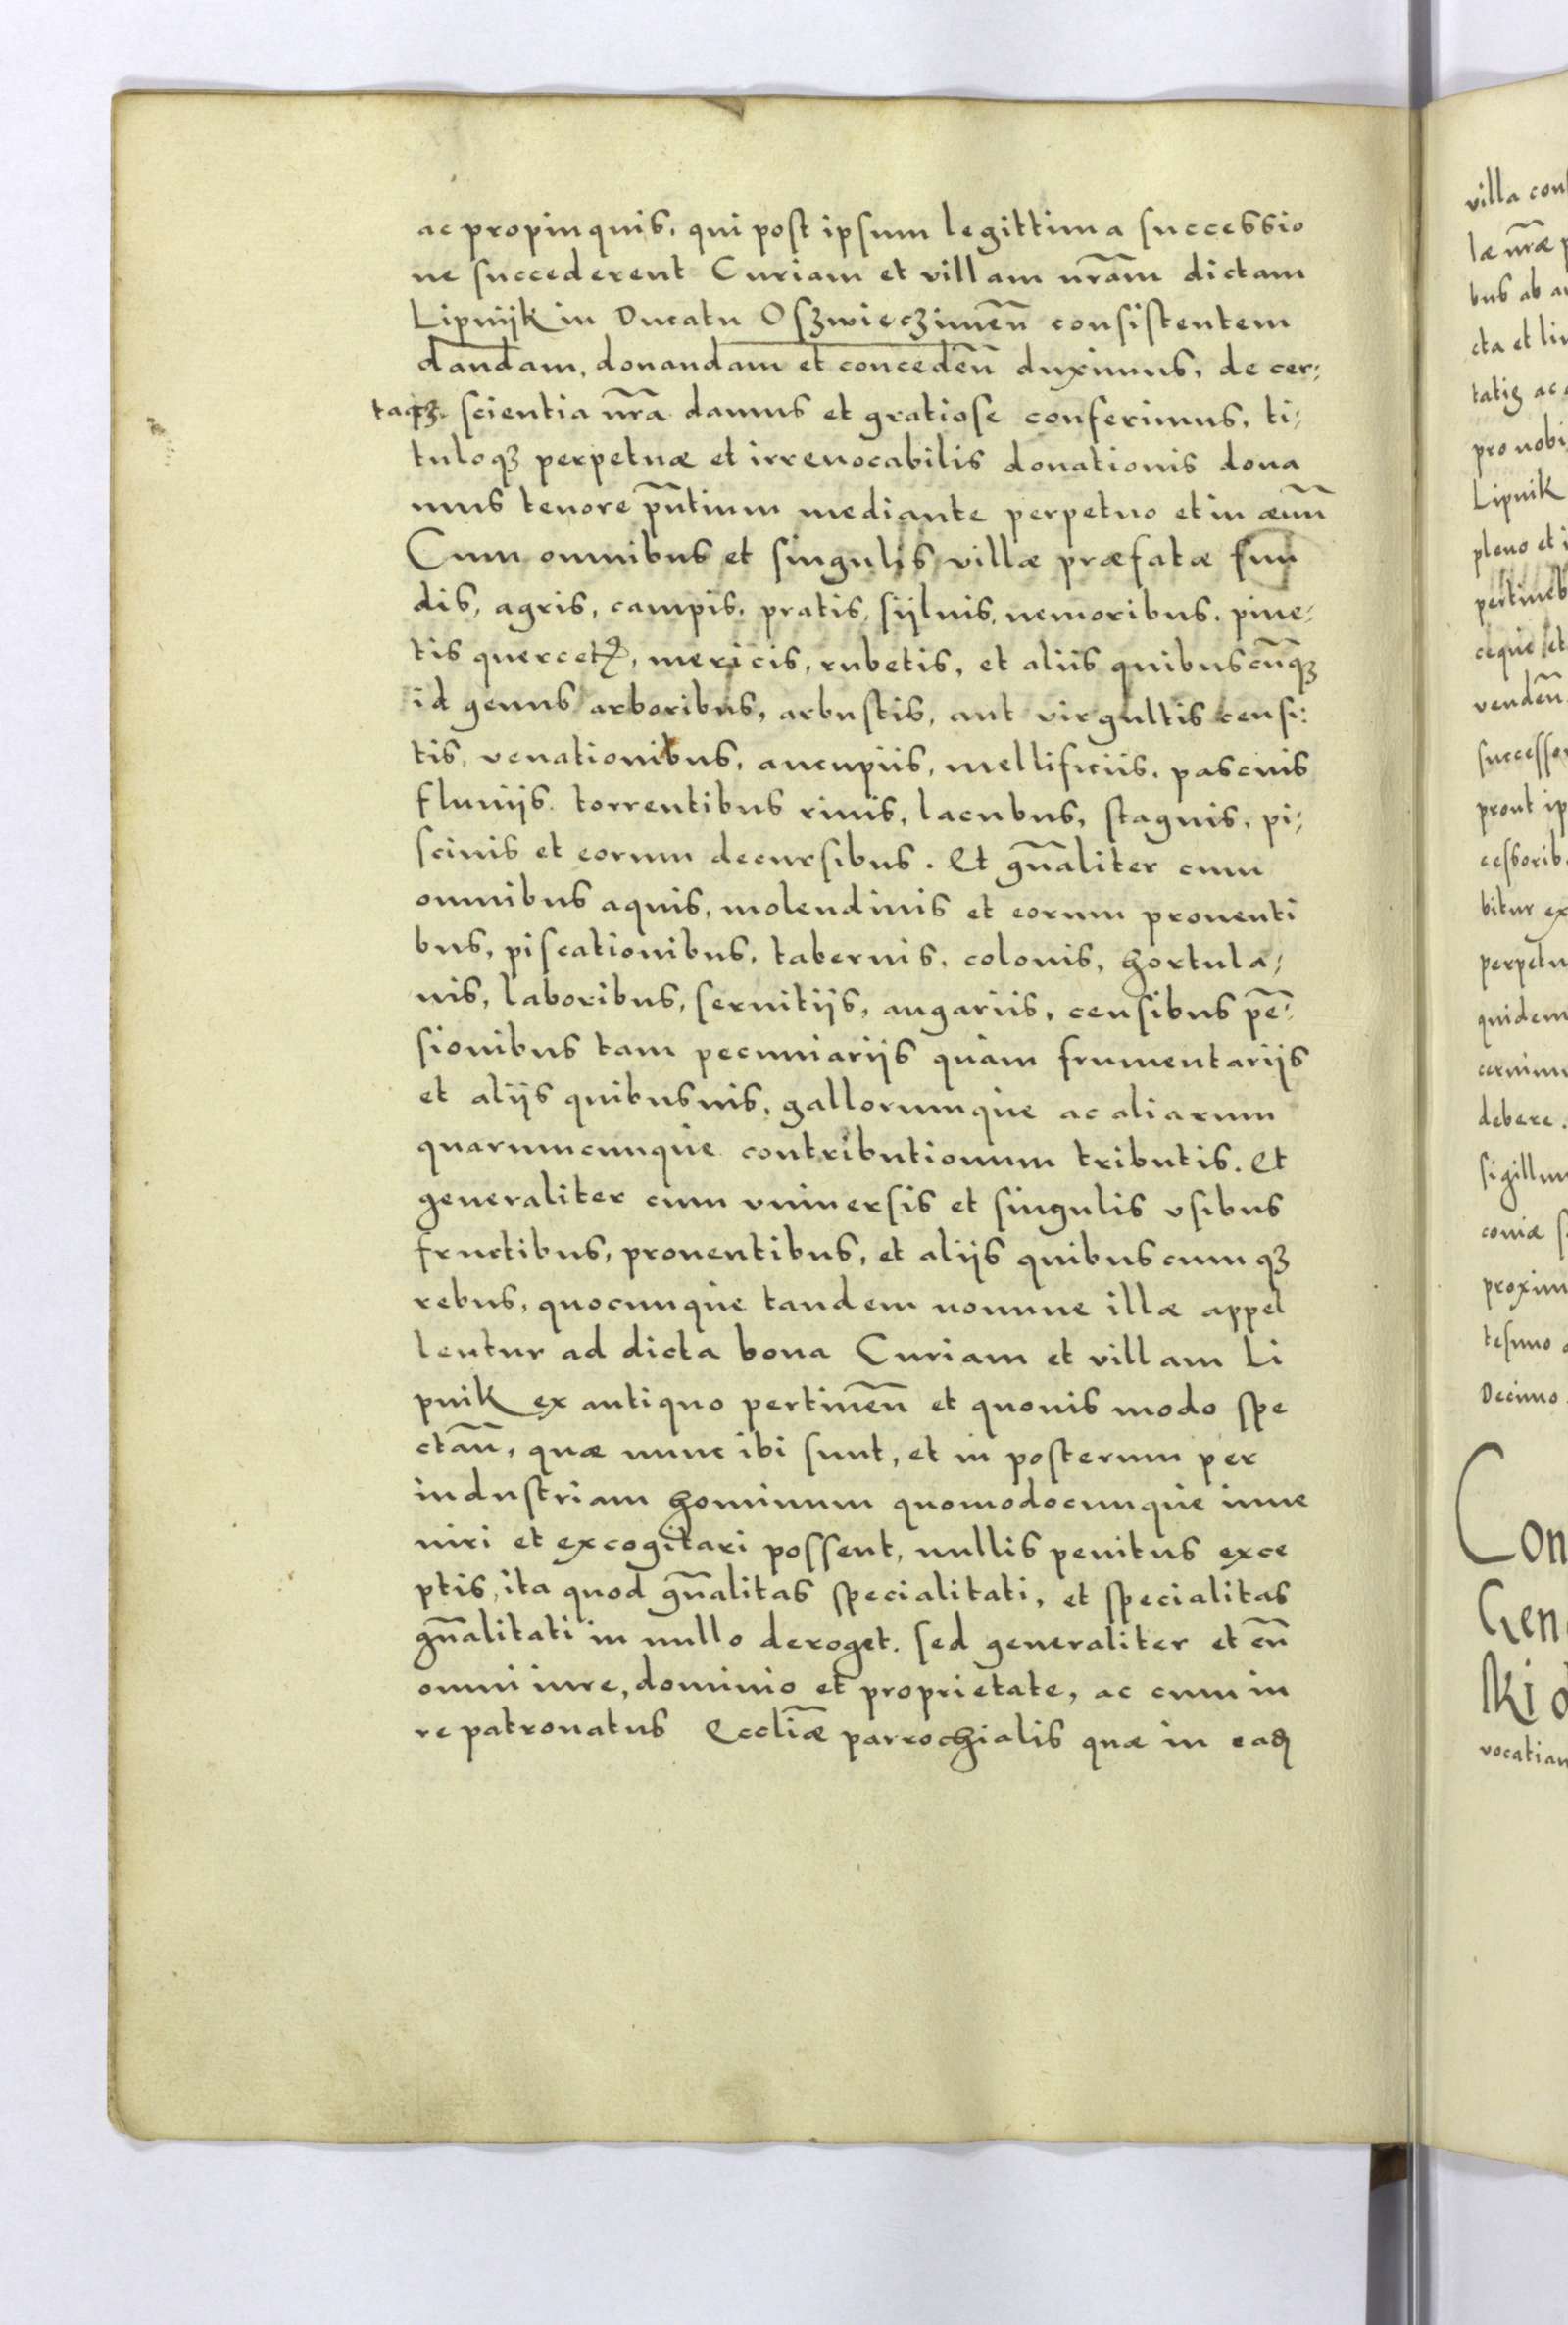 ac propinquis, qui post ipsum legittima successio
ne succederent Curiam et villam nr̃am dictam
Lipnijk in Ducatu Oszwieczimeñ consistentem
dandam, donandam et concedeñ duximus, de cer;
taqȝ. scientia nr̃a damus et gratiose conferimus, ti;
tuloqȝ perpetuæ et irreuocabilis donationis dona
mus tenore pñtium mediante perpetuo et in æuũ
Cum omnibus et singulis villæ præfatæ fun
dis, agris, campis, pratis, sijluis, nemoribus, pine;
tis quercetꝭ, mericis, rubetis, et aliis quibuscũqȝ
id genus arboribus, arbustis, aut virgultis censi:
tis, venationibus, aucupiis, mellificiis, pascuis
fluuijs. torrentibus riuis, lacubus, stagnis, pi;
scinis et eorum decursibus. Et gñaliter cum
omnibus aquis, molendinis et eorum prouenti
bus, piscationibus, tabernis, colonis, hortula;
nis, laboribus, seruitijs, angariis, censibus pẽ;
sionibus tam pecuniarijs quàm frumentarijs
et alijs quibusuis, gallorumque ac aliarum
quarumcunque contributionum tributis. Et
generaliter cum vniuersis et singulis vsibus
fructibus, prouentibus, et alijs quibuscumqȝ
rebus, quocunque tandem nomine illæ appel
lentur ad dicta bona Curiam et villam Li
pnik ex antiquo pertineñ et quouis modo spe
ctañ, quæ nunc ibi sunt, et in posterum per
industriam hominum quomodocunque inue
niri et excogitari possent, nullis penitus exce
ptis, ita quod gñalitas specialitati, et specialitas
gñalitati in nullo deroget. sed generaliter et cũ
omni iure, dominio et proprietate, ac cum iu
re patronatus Eccl̃iæ parrochialis quæ in eadꝫ
villa con
læ nr̃æ p
bus ab a
cta et li
tatiȝ ac
pro nobi
Lipnik
pleno et i
pertineb
ceque et
vendeñ
successo
prout ip
cessorib
bitur ex
perpetu
quidem
debere.
sigillum
coniæ s
proxim
tesimo
Decimo
Con
Gen
ski
vocatian